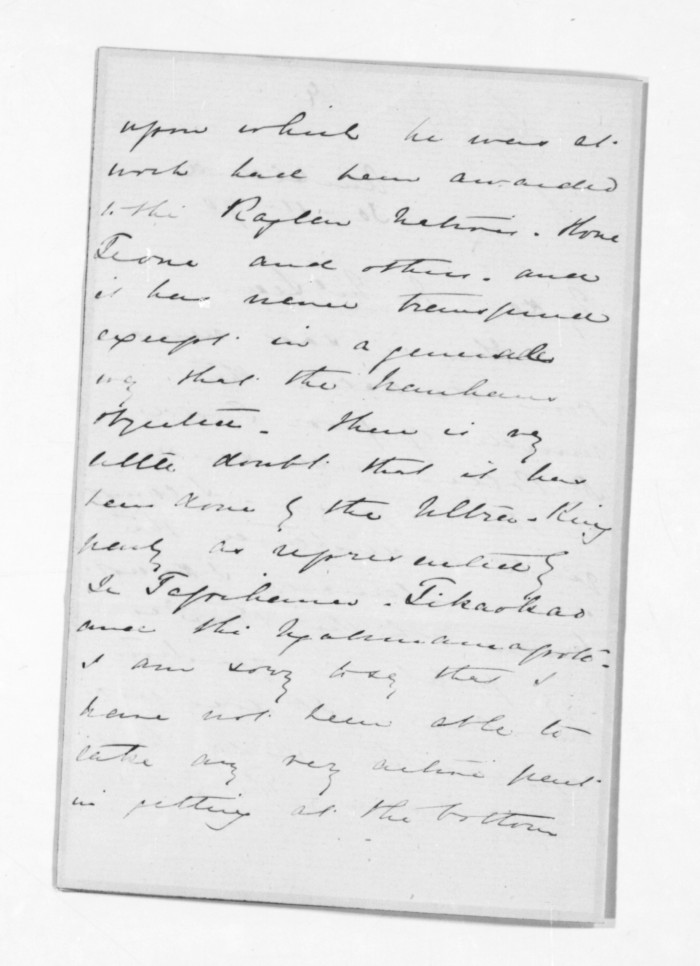 upon which he was at
work had been awarded
to the Raglan Natives. Hone
Teone and others. and
it has never transpired
except in a general
way that the Hauhaus
objected. There is very
little doubt that it has
been done by the Ultra-King
party as represented by
Te Tapihana. Tikaokao
and the
I am sorry to say that I
have not been able to
take any very active part
in getting at the bottom